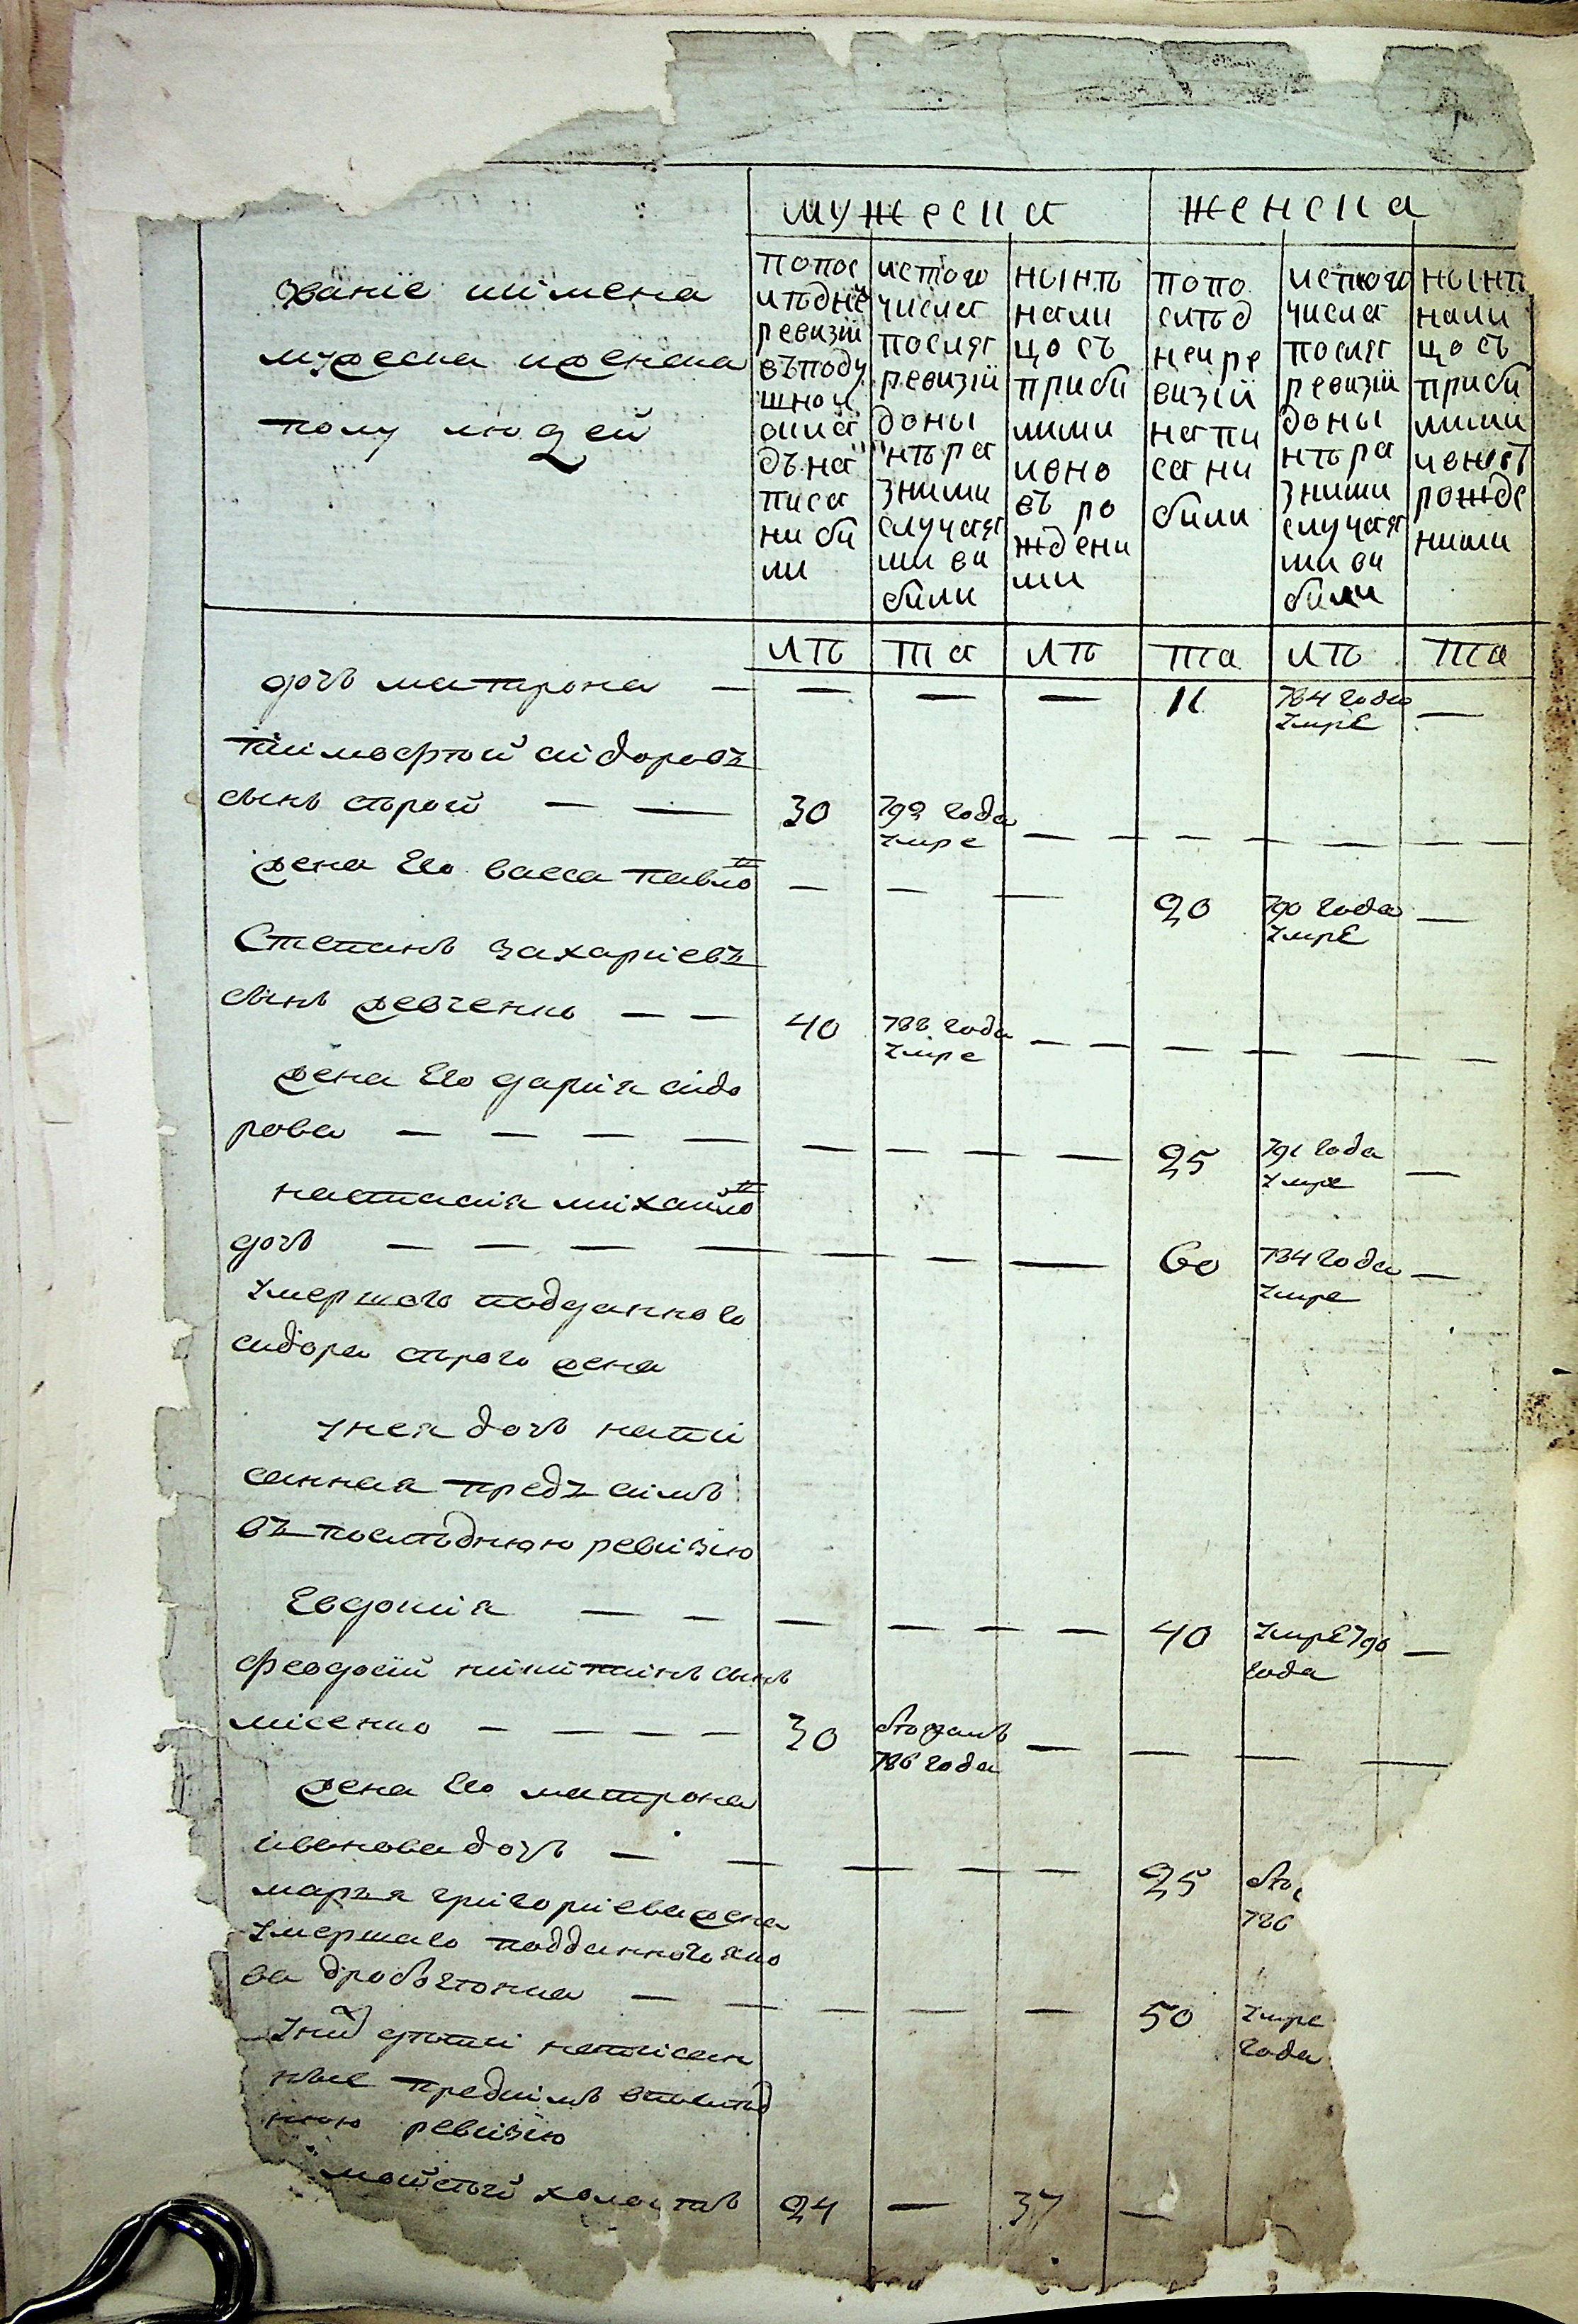 мужеска женска
званїе иимена
мужеска иженска
полу людей
попос
лѣднѣ
ревизїи
въподу
шной
окла
дъна
писа
ни би
ли
истого
числа
послѧ
ревизїи
доны
нѣра
зними
случаѧ
ми ви
били
нынѣ
нали
цо съ
приби
лими
ивно
въ ро
ждени
ми
попо
слѣд
ней ре
визїи
напи
сани
били
истого
числа
послѧ
ревизїи
доны
нѣра
зними
случаѧ
ми ви
били
нынѣ
нали
цо съ
приби
лими
ивновъ
рожде
ними
лѣ та лѣ та лѣ та
дочь матрона — — — — 11 784 года —
умре
тимофтой сидоровъ
сынъ старой — — 30 792 года — — — — — —
умре
жена Его васса павло — — — 20 790 года —
умре
Степанъ захарїевъ
сынъ жевченко — — 40 788 года — — — — — —
умре
жена Его дарїя сидо
рова — — — — — — — — 25 791 года —
умре
настасїя михайло
дочь — — — — — — — 60 784 года —
умре
умершего подданного
сидора старого жена
унея дочь напи
санная предъ симъ
въпослѣднюю ревизїю
Евдокия — — — — — — 40 умре 790 —
года
феодосїй никитинъ сынъ
мисенко — — — — 30 бѣжалъ — — — —
786 года
жена Его матрона
иванова дочь — — — — — — 25
786
марья григорїева жена
умершаго подданного яко
ва дроботенка — — — — — 50 умре
года
уней дѣти написан
ные предсимъ впослѣд
нюю ревизїю
мойсей холостъ 24 — 37 —